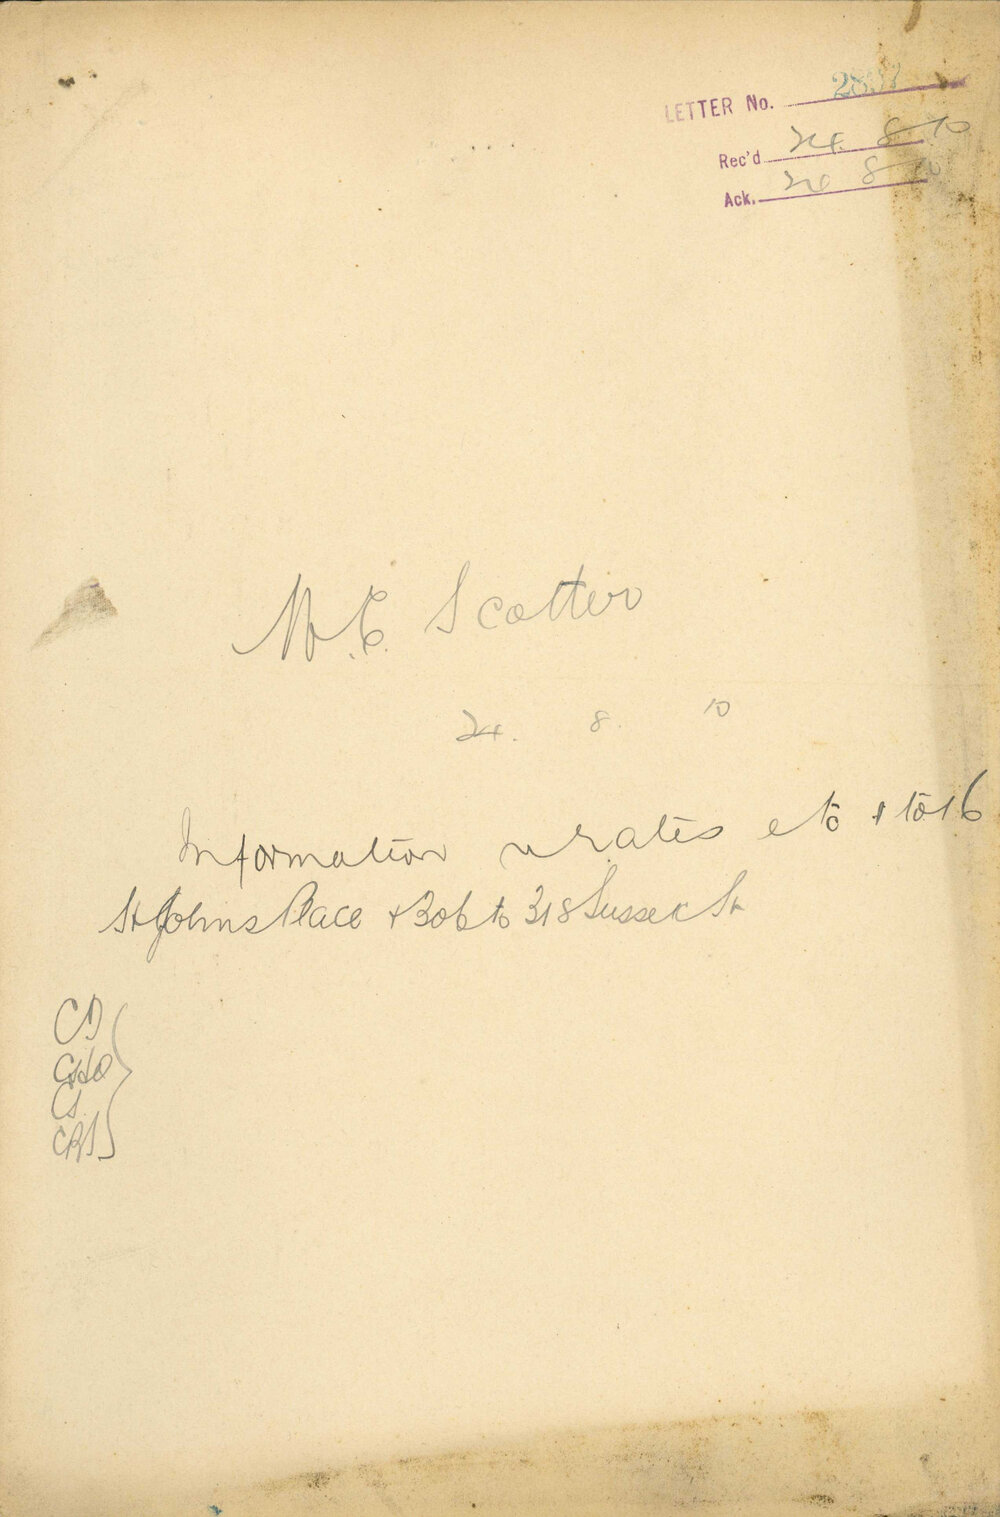 LETTER No. 2837
Rec'd 24. 8. 10
Ack. 24 8 10
W.E. Scotter
24. 8. 10
Information re rates etc 1 to 16
St Johns Place & 306 to 318 Sussex St
CS
CHO
CS
CRS